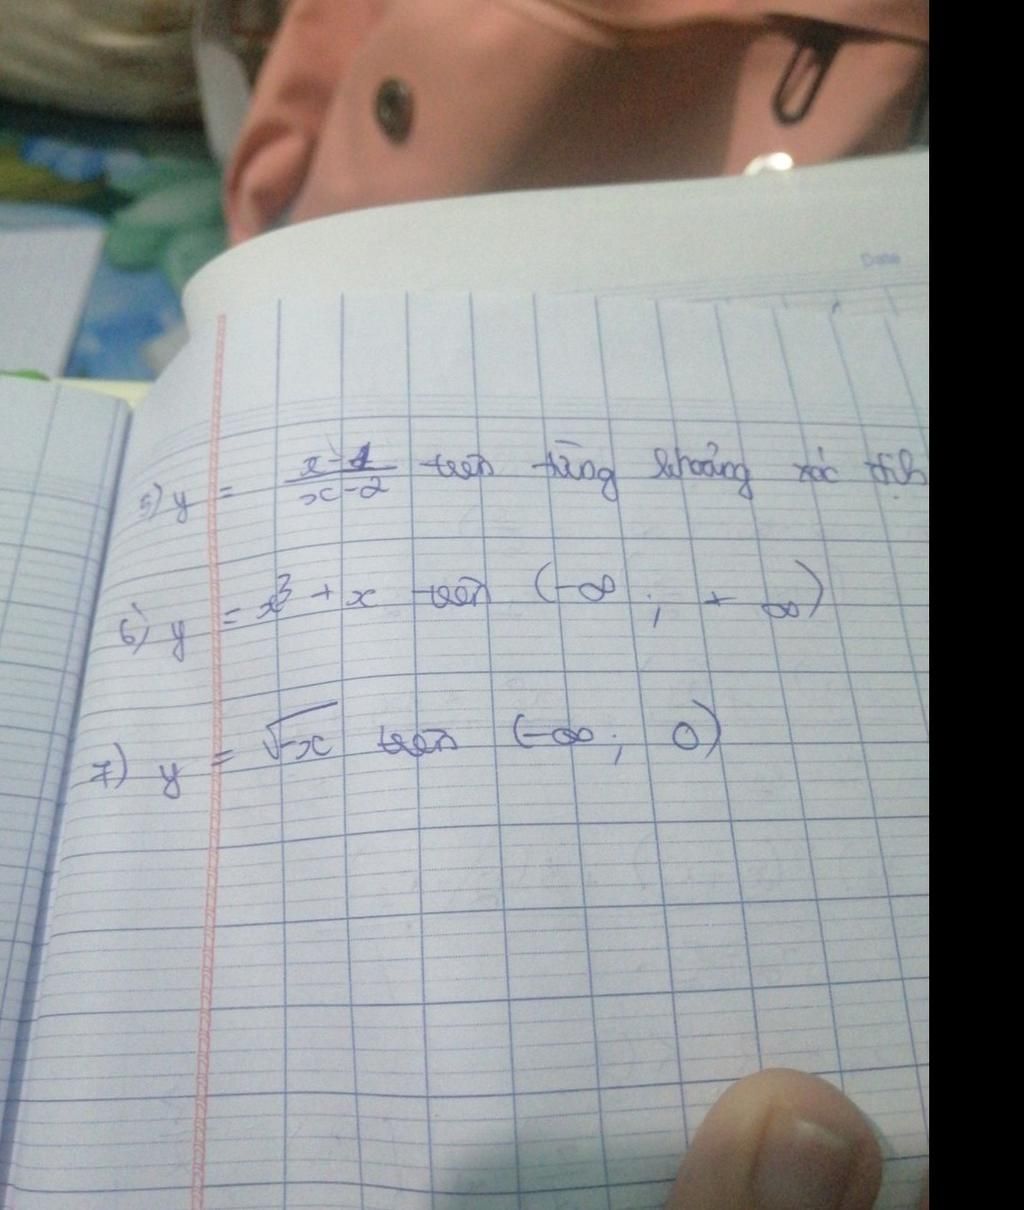 Date
5) y = \frac{x-1}{x-2} trên từng khoảng xác định
6) y = x³ + x trên (-∞ ; + ∞)
7) y = √-x trên (-∞ ; 0)